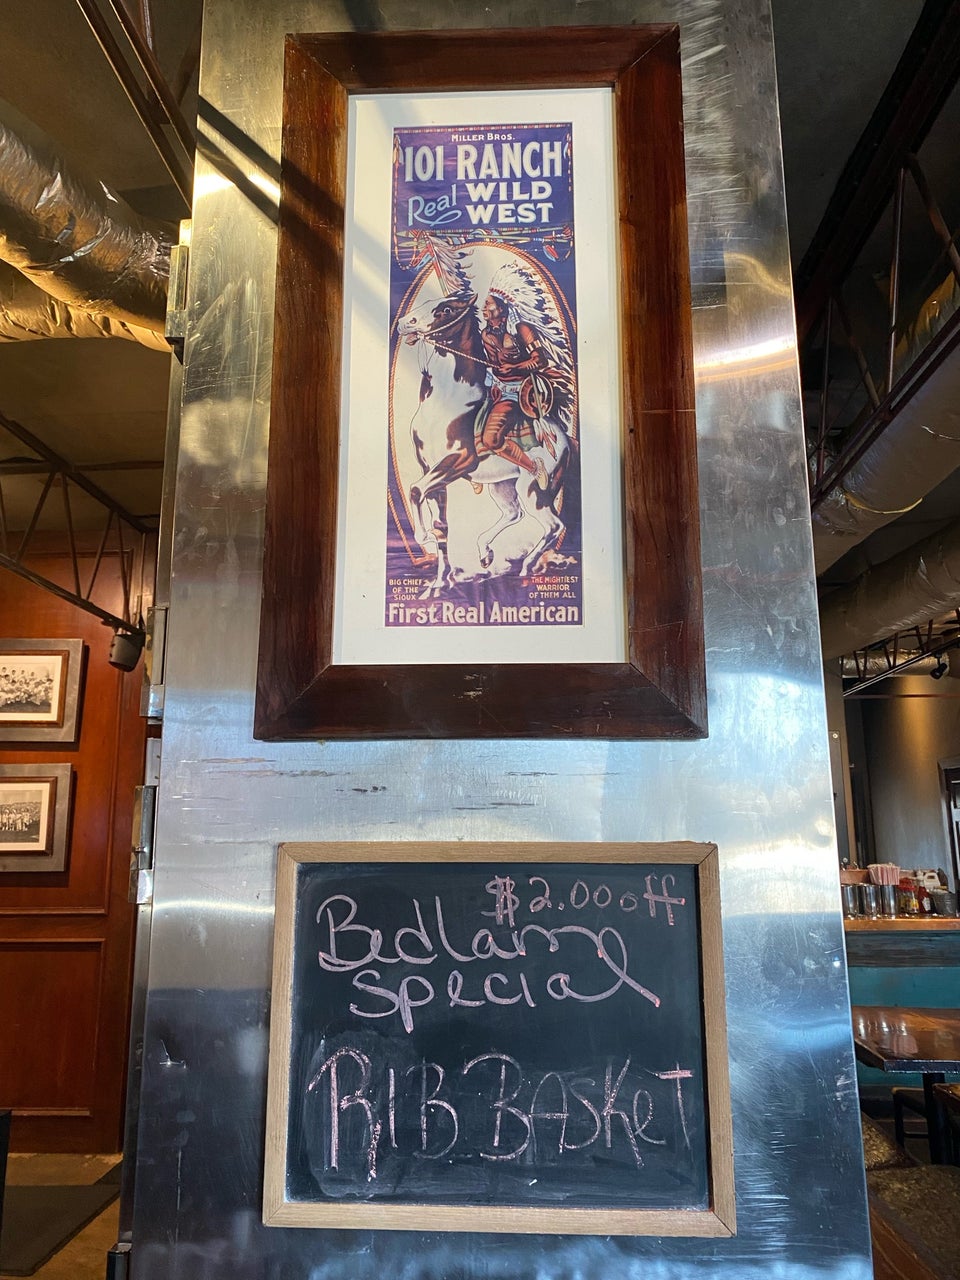 MILLER BROS.
101 RANCH
Real WILD
WEST
BIG CHIEF
OF THE
SIOUX
THE MIGHTIEST
WARRIOR
OF THEM ALL
First Real American
$2.00 off
Bedlam
special
RIB BASKeT